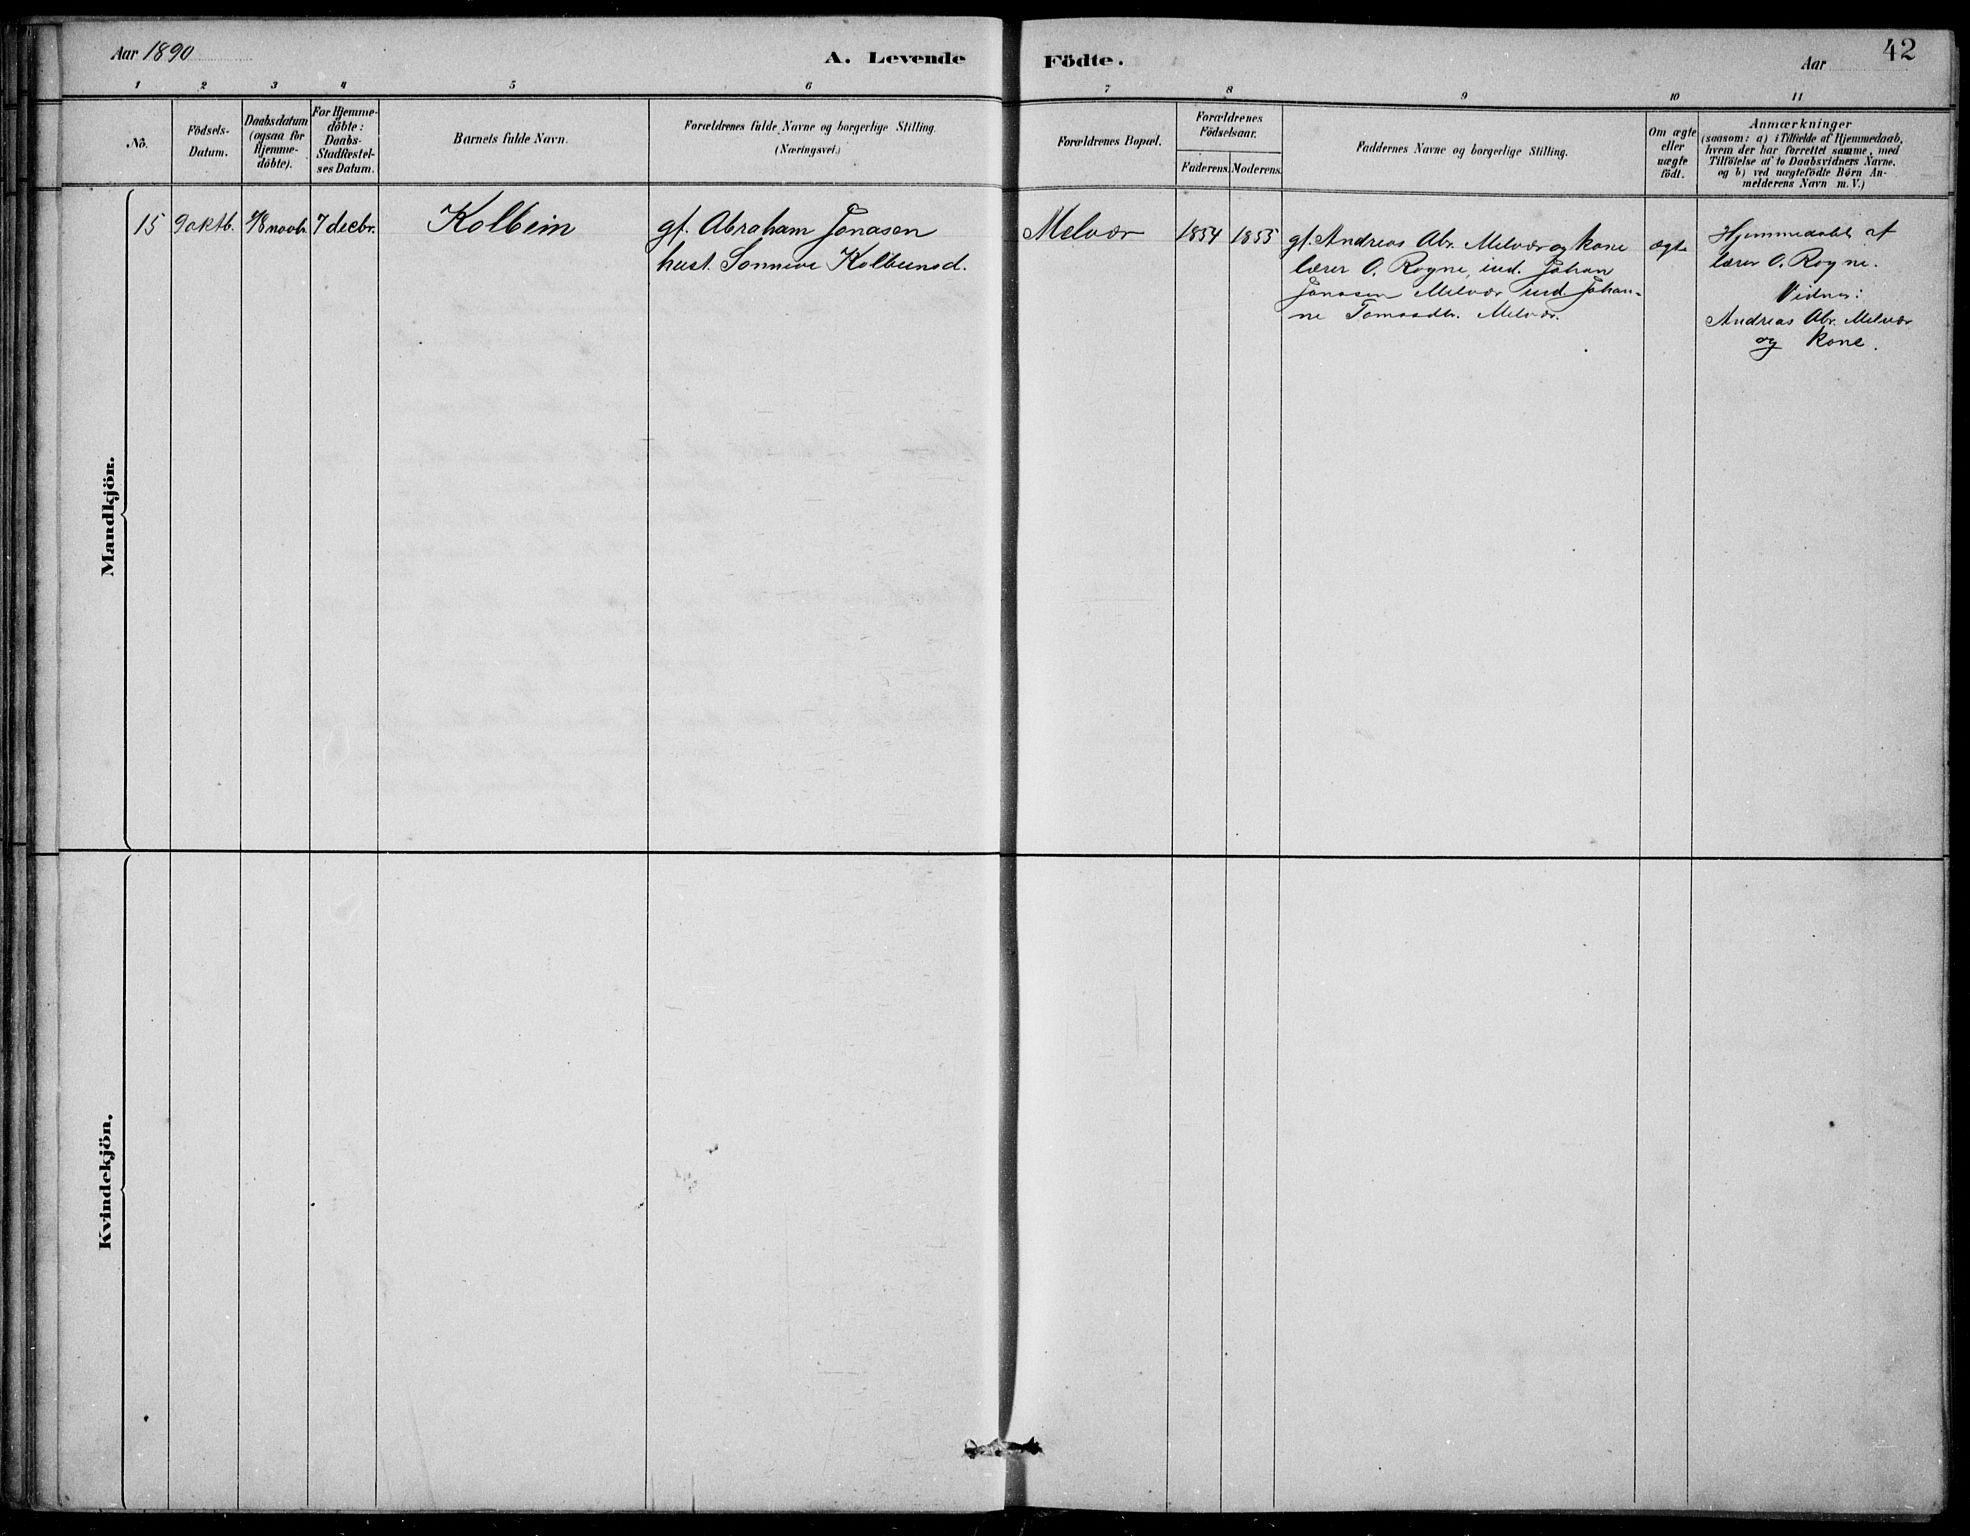 Aar 1890
A. Levende
Födte.
Aar
42
1 2 3 4 5 6 7 8 9 10 11
No.
Födsels-
Datum.
Daabsdatum
(ogsaa for
Hjemme-
döbte).
For Hjemme-
döbte:
Daabs-
Stadfestel-
ses Datum.
Barnets fulde Navn.
Forældrenes fulde Navne og borgerlige Stilling.
(Næringsvei.)
Forældrenes Bopæl.
Forældrenes
Födselsaar.
Faderens. Moderens.
Faddernes Navne og borgerlige Stilling.
Om ægte
eller
uægte
födt.
Anmærkninger
(saasom: a) i Tilfælde af Hjemmedaab,
hvem der har forrettet samme, med
Tilföielse af to Daabsvidners Navne.
og b) ved uægtefödte Börn An-
melderens Navn m. V.)
Mandkjön.
15
9 oktb.
novb.
7 decbr.
Kolbein
gf. Abraham Jonasen
hust. Sonneve Kolbeinsd.
Melvær
1854
1855
gf. Andreas Abr. Melvær og kone
lærer O. Rogne, ind. Johan
Jonasen Melvær ind. Johan-
ne Melvær.
ægte
Hjemmedöbt af
lærer O. Rogne.
Vidner:
Andreas Abr. Melvær
og kone.
Kvindekjön.